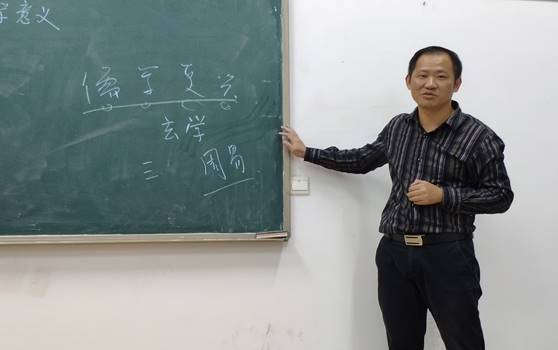 学意义
儒学复兴
玄学
三 周易